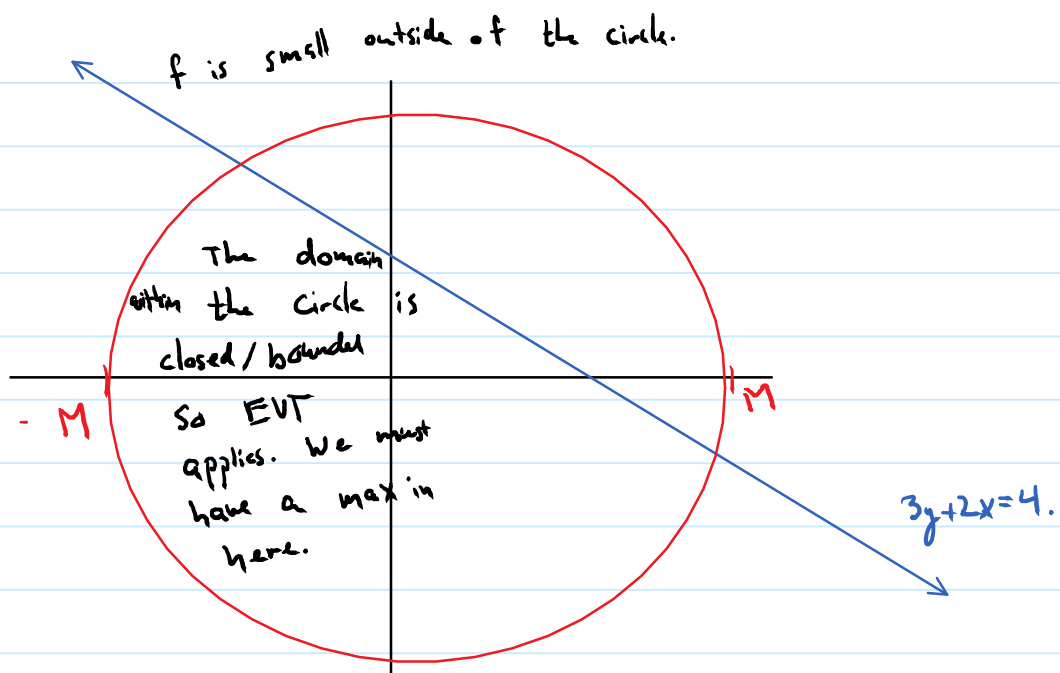 f is small outside of the circle.
The domain
within the circle is
closed/bounded
- M
M
So EVT
applies. We must
have a max in
here.
3y+2x=4.